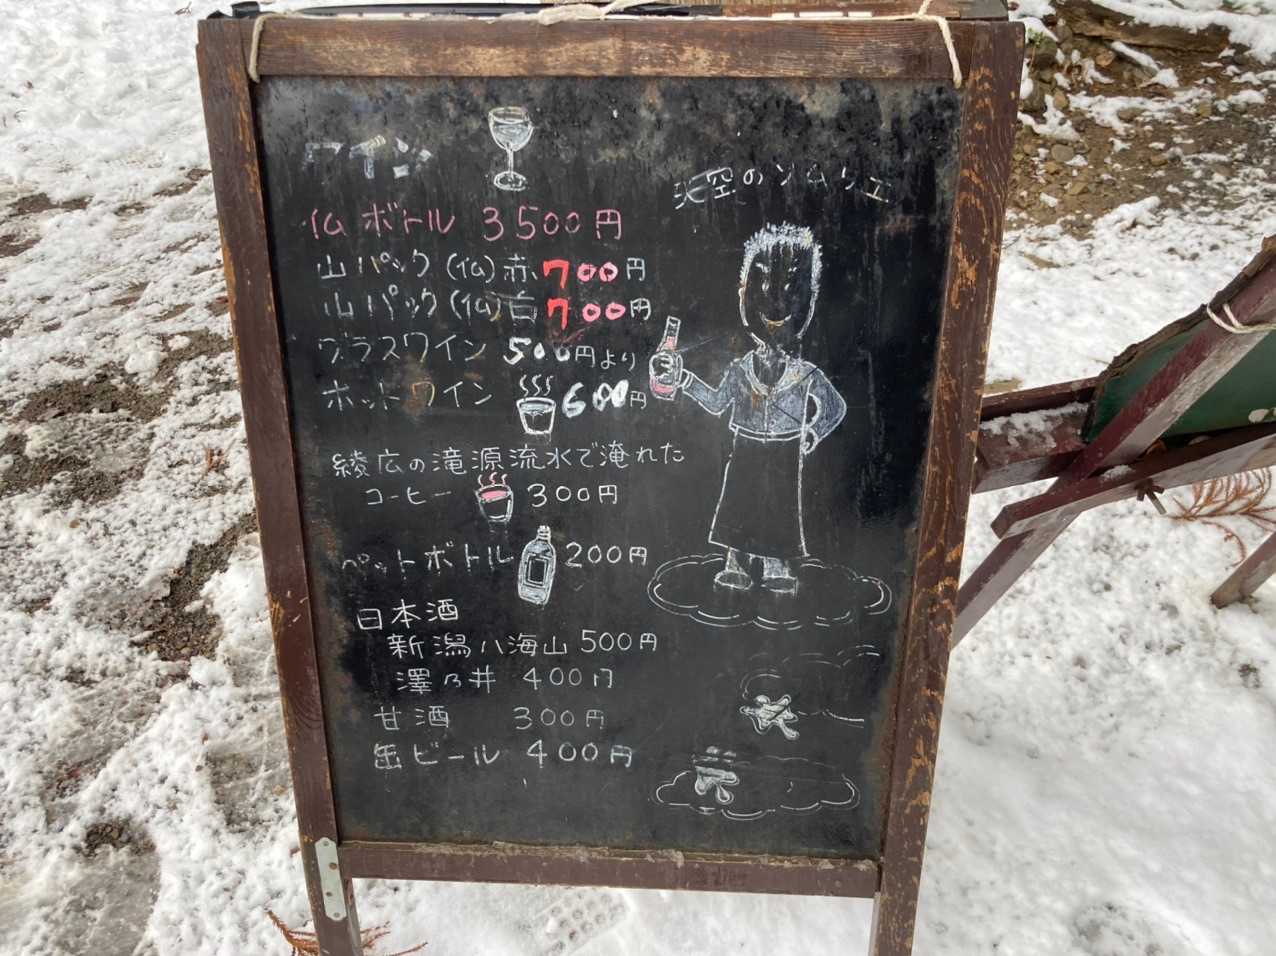 ワイン
天空のソムリエ
仏 ボトル 3500円
山パック(仏)赤 700円
山パック(仏)白 700円
グラスワイン 500円より
ホットワイン 600円
綾広の滝源流水で淹れた
コーヒー 300円
ペットボトル 200円
日本酒
新潟八海山 500円
澤乃井 400円
甘酒 300円
缶ビール 400円